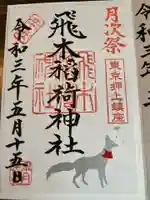 月次祭
東京押上鎮座
飛木稲荷神社
令和三年五月十五日